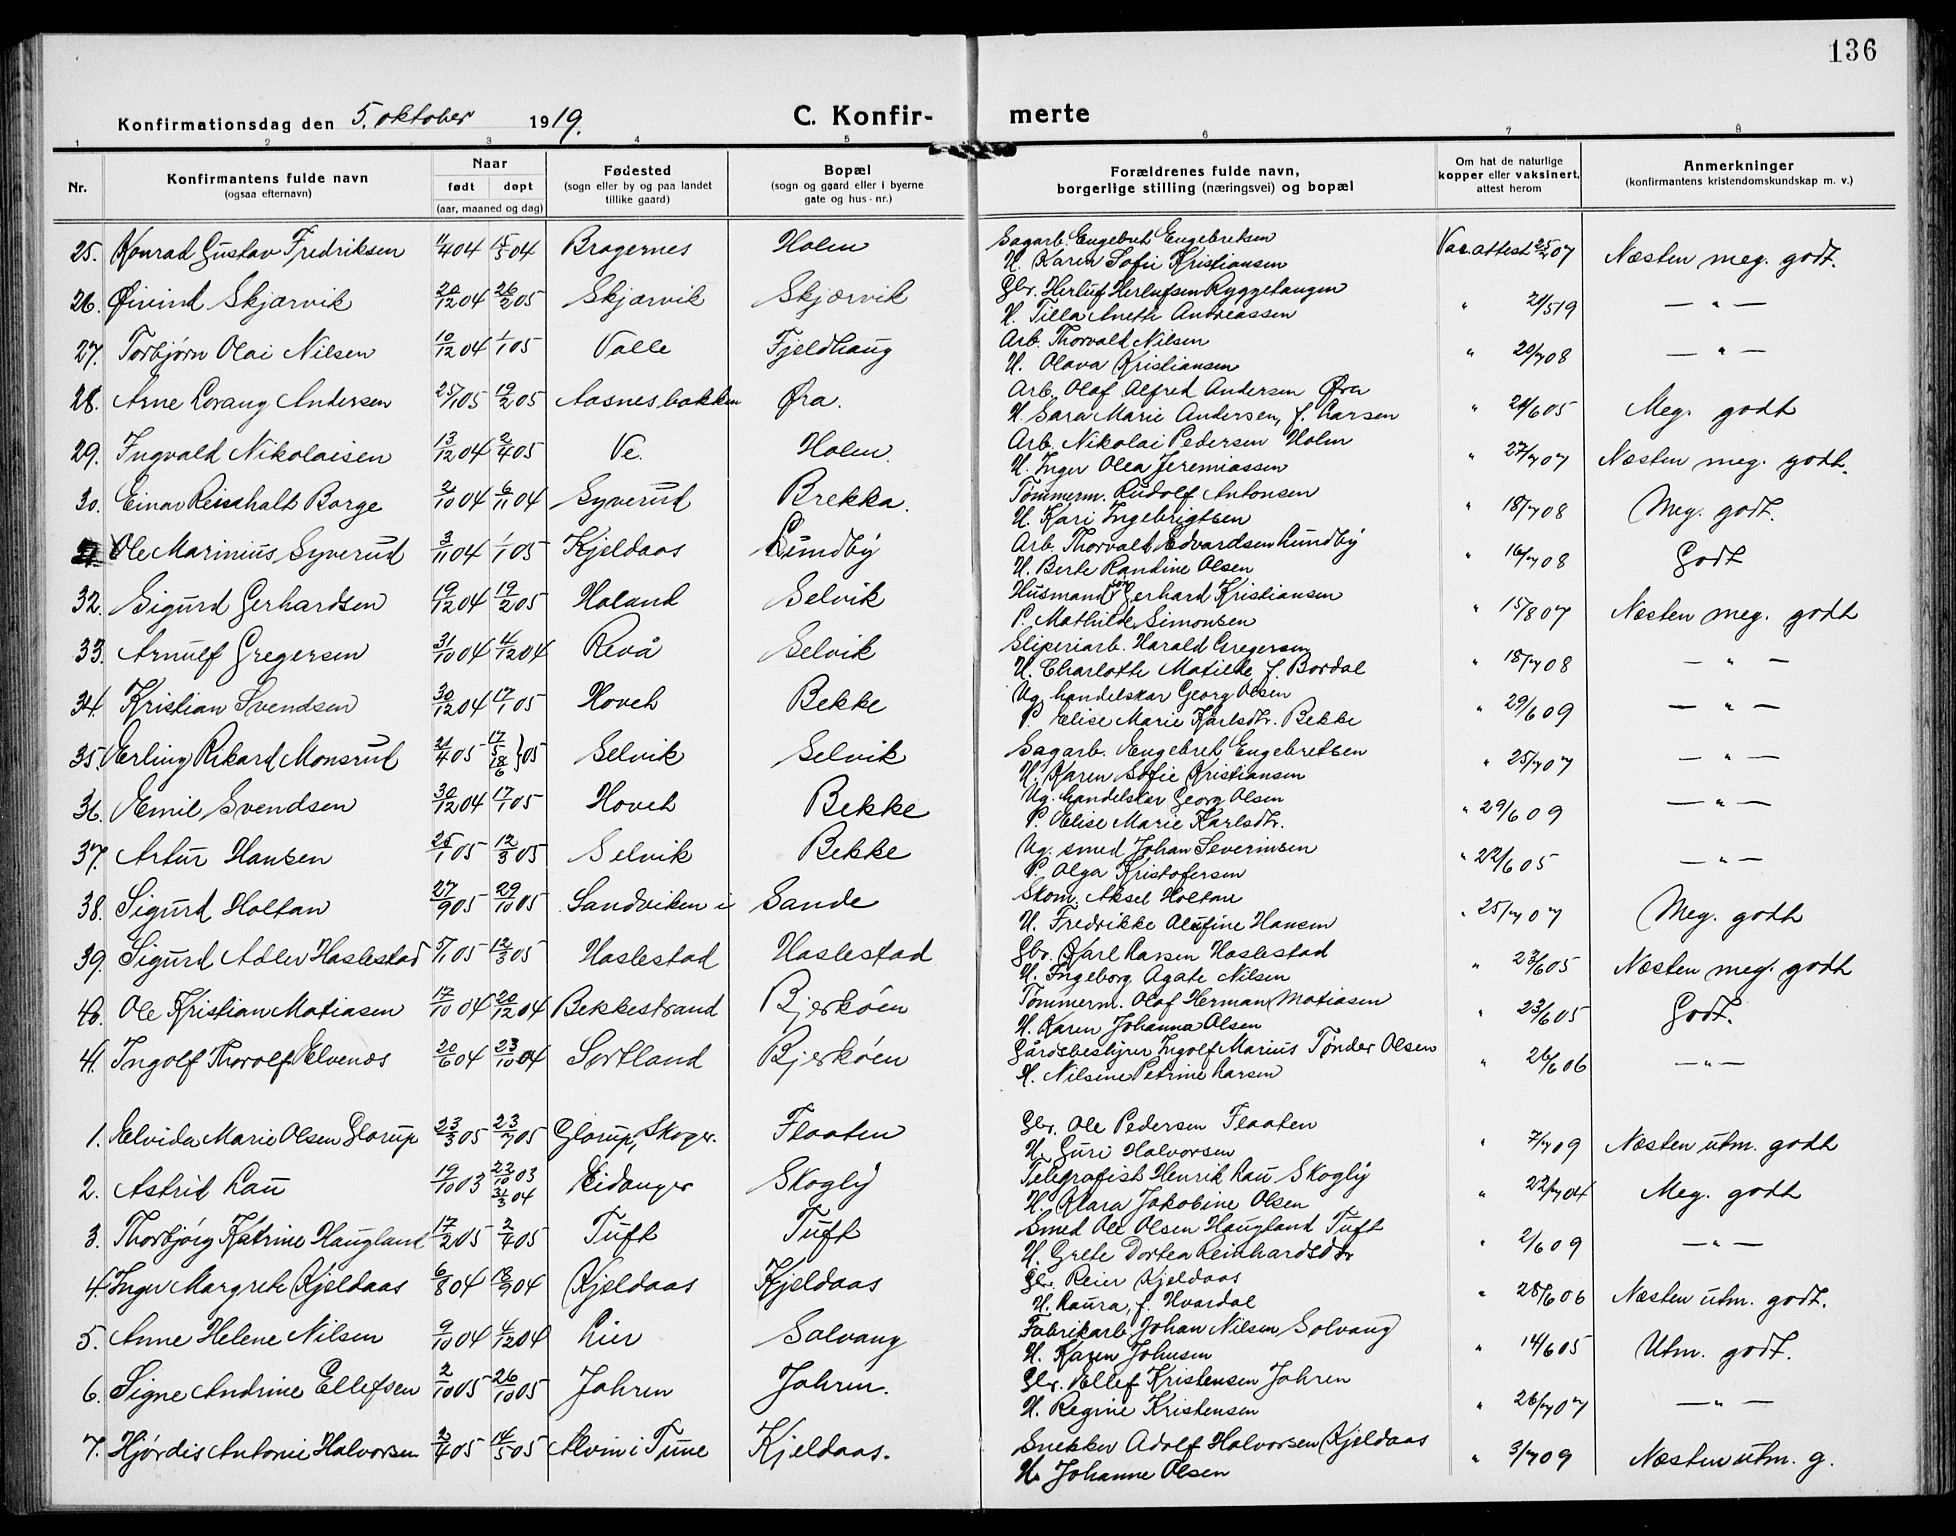 136
Konfirmationsdag den 5. oktober 1919.
C. Konfir- merte
1 2 3 4 5 6 7 8
Nr. Konfirmantens fulde navn (ogsaa efternavn) Naar født døpt (aar, maaned og dag) Fødested (sogn eller by og paa landet tillike gaard) Bopæl (sogn og gaard eller i byerne gate og hus-nr.) Forældrenes fulde navn, borgerlige stilling (næringsvei) og bopæl Om hat de naturlige kopper eller vaksinert, attest herom Anmerkninger (konfirmantens kristendomskundskap m. v.)
25. Konrad Gustav Fredriksen 11/4 04 15/5 04 Bragernes Holm Sagarb. Engebret Engebretsen
H. Karen Sofie Kristiansen Vac.attest 25/2 07 Næsten meg. godt.
26. Øivind Skjærvik 20/12 04 26/2 05 Skjærvik Skjærvik Gbr. Herluf Herlufsen Ryggetangen
H. Tilla Aneth Andreassen " 21/5 19 — " —
27. Torbjørn Olai Nilsen 10/12 04 1/1 05 Valle Fjeldhaug Arb. Thorvald Nilsen
H. Olava Kristiansen " 20/7 08 — " —
28. Arne Lorang Andersen 25/1 05 19/2 05 Aasnesbakken Øra. Arb. Olaf Alfred Andersen Øra
H Sara Marie Andersen, f. Larsen " 21/6 05 Meg. godt
29. Ingvald Nikolaisen 13/12 04 2/4 05 Ve. Holm. Arb. Nikolai Pedersen Holm
H. Inger Olea Jeremiassen " 27/7 07 Næsten meg. godt.
30. Einar Reinhalt Borge 2/10 04 6/11 04 Syverud Brekka. Tømmerm. Rudolf Antonsen
H. Kari Ingebrigtsen " 18/7 08 Meg. godt.
31. Ole Marinius Syverud 3/11 04 1/1 05 Kjeldaas Lundby Arb. Thorvald Edvardsen Lundby
H. Berte Randine Olsen " 16/7 08 Godt
32. Sigurd Gerhardsen 19/12 04 19/2 05 Holand Selvik Husmandssøn Gerhard Kristiansen
P. Mathilde Simonsen " 15/8 07 Næsten meg. godt
33. Arnulf Gregersen 31/10 04 4/12 04 Revå Selvik Sliperiarb. Harald Gregersen
H. Charlotte Matilde f. Bordal " 18/7 08 — " —
34. Kristian Svendsen 30/12 04 17/1 05 Hovet Bekke Ug. handelskar Georg Olsen
P. Elise Marie Karlsdtr. Bekke " 29/6 09 — " —
35. Erling Rikard Monsrud 21/4 05 17/5 18/6 } 05 Selvik Selvik Sagarb. Engebret Engebretsen
H. Karen Sofie Kristiansen " 25/7 07 — " —
36. Emil Svendsen 30/12 04 17/1 05 Hovet Bekke Ug. handelskar Georg Olsen
P. Elise Marie Karlsdtr. " 29/6 09 — " —
37. Artur Hansen 25/1 05 12/3 05 Selvik Bekke Ug. smed Johan Severinsen
P. Olga Kristofersen " 22/6 05 — " —
38. Sigurd Holtan 27/9 05 29/10 05 Sandviken i Sande Skom. Aksel Holtan
H. Fredrikke Alufine Hansen " 25/7 07 Meg. godt
39. Sigurd Adler Haslestad 5/1 05 12/3 05 Haslestad Haslestad Gbr. Karl Larsen Haslestad
H. Ingeborg Agate Nilsen " 23/6 05 Næsten meg. godt
40. Ole Kristian Matiasen 17/10 04 20/12 04 Bekkestrand Bjerkøen Tømmerm. Olaf Herman Matiasen
H. Karen Johanna Olsen " 23/6 05 Godt.
41. Ingolf Thorolf Elvenæs 20/6 04 23/10 04 Sortland Bjerkøen Gårdsbestyrer Ingolf Marius Tønder Olsen
H. Nilsine Petrine Larsen " 26/6 06 — " —
1. Elvida Marie Olsen Glorup 23/3 05 23/7 05 Glorup, Skoger. Flaaten Gbr. Ole Pedersen Flaaten
H. Guri Halvorsen " 7/7 09 Næsten utm. godt
2. Astrid Lau 19/10 03 22/10 03 31/3 04 Eidanger Skogly Telegrafist Henrik Lau Skogly
H. Klara Jakobine Olsen " 22/7 04 Meg. godt
3. Thorbjørg Katrine Haugland 17/2 05 2/4 05 Tuft Tuft Smed Ole Olsen Haugland Tuft
H. Grete Dortea Reinhardsdtr " 2/6 09 — " —
4. Inger Margrete Kjeldaas 6/8 04 18/9 04 Kjeldaas Kjeldaas Gbr. Reier Kjeldaas
H. Laura, f. Hvardal " 28/6 06 Næsten utm. godt.
5. Anne Helene Nilsen 9/10 04 4/12 04 Lier Solvang Fabrikarb. Johan Nilsen Solvang
H. Karen Johnsen " 14/6 05 Utm. godt.
6. Signe Andrine Ellefsen 2/10 05 26/10 05 Jahren Jahren. Gbr. Ellef Kristensen Jahren
H. Regine Kristensen " 26/7 07 — " —
7. Hjørdis Antonie Halvorsen 2/4 05 14/5 05 Alvim i Tune Kjeldaas. Snekker Adolf Halvorsen Kjeldaas
H. Johanne Olsen " 3/7 09 Næsten utm. g.